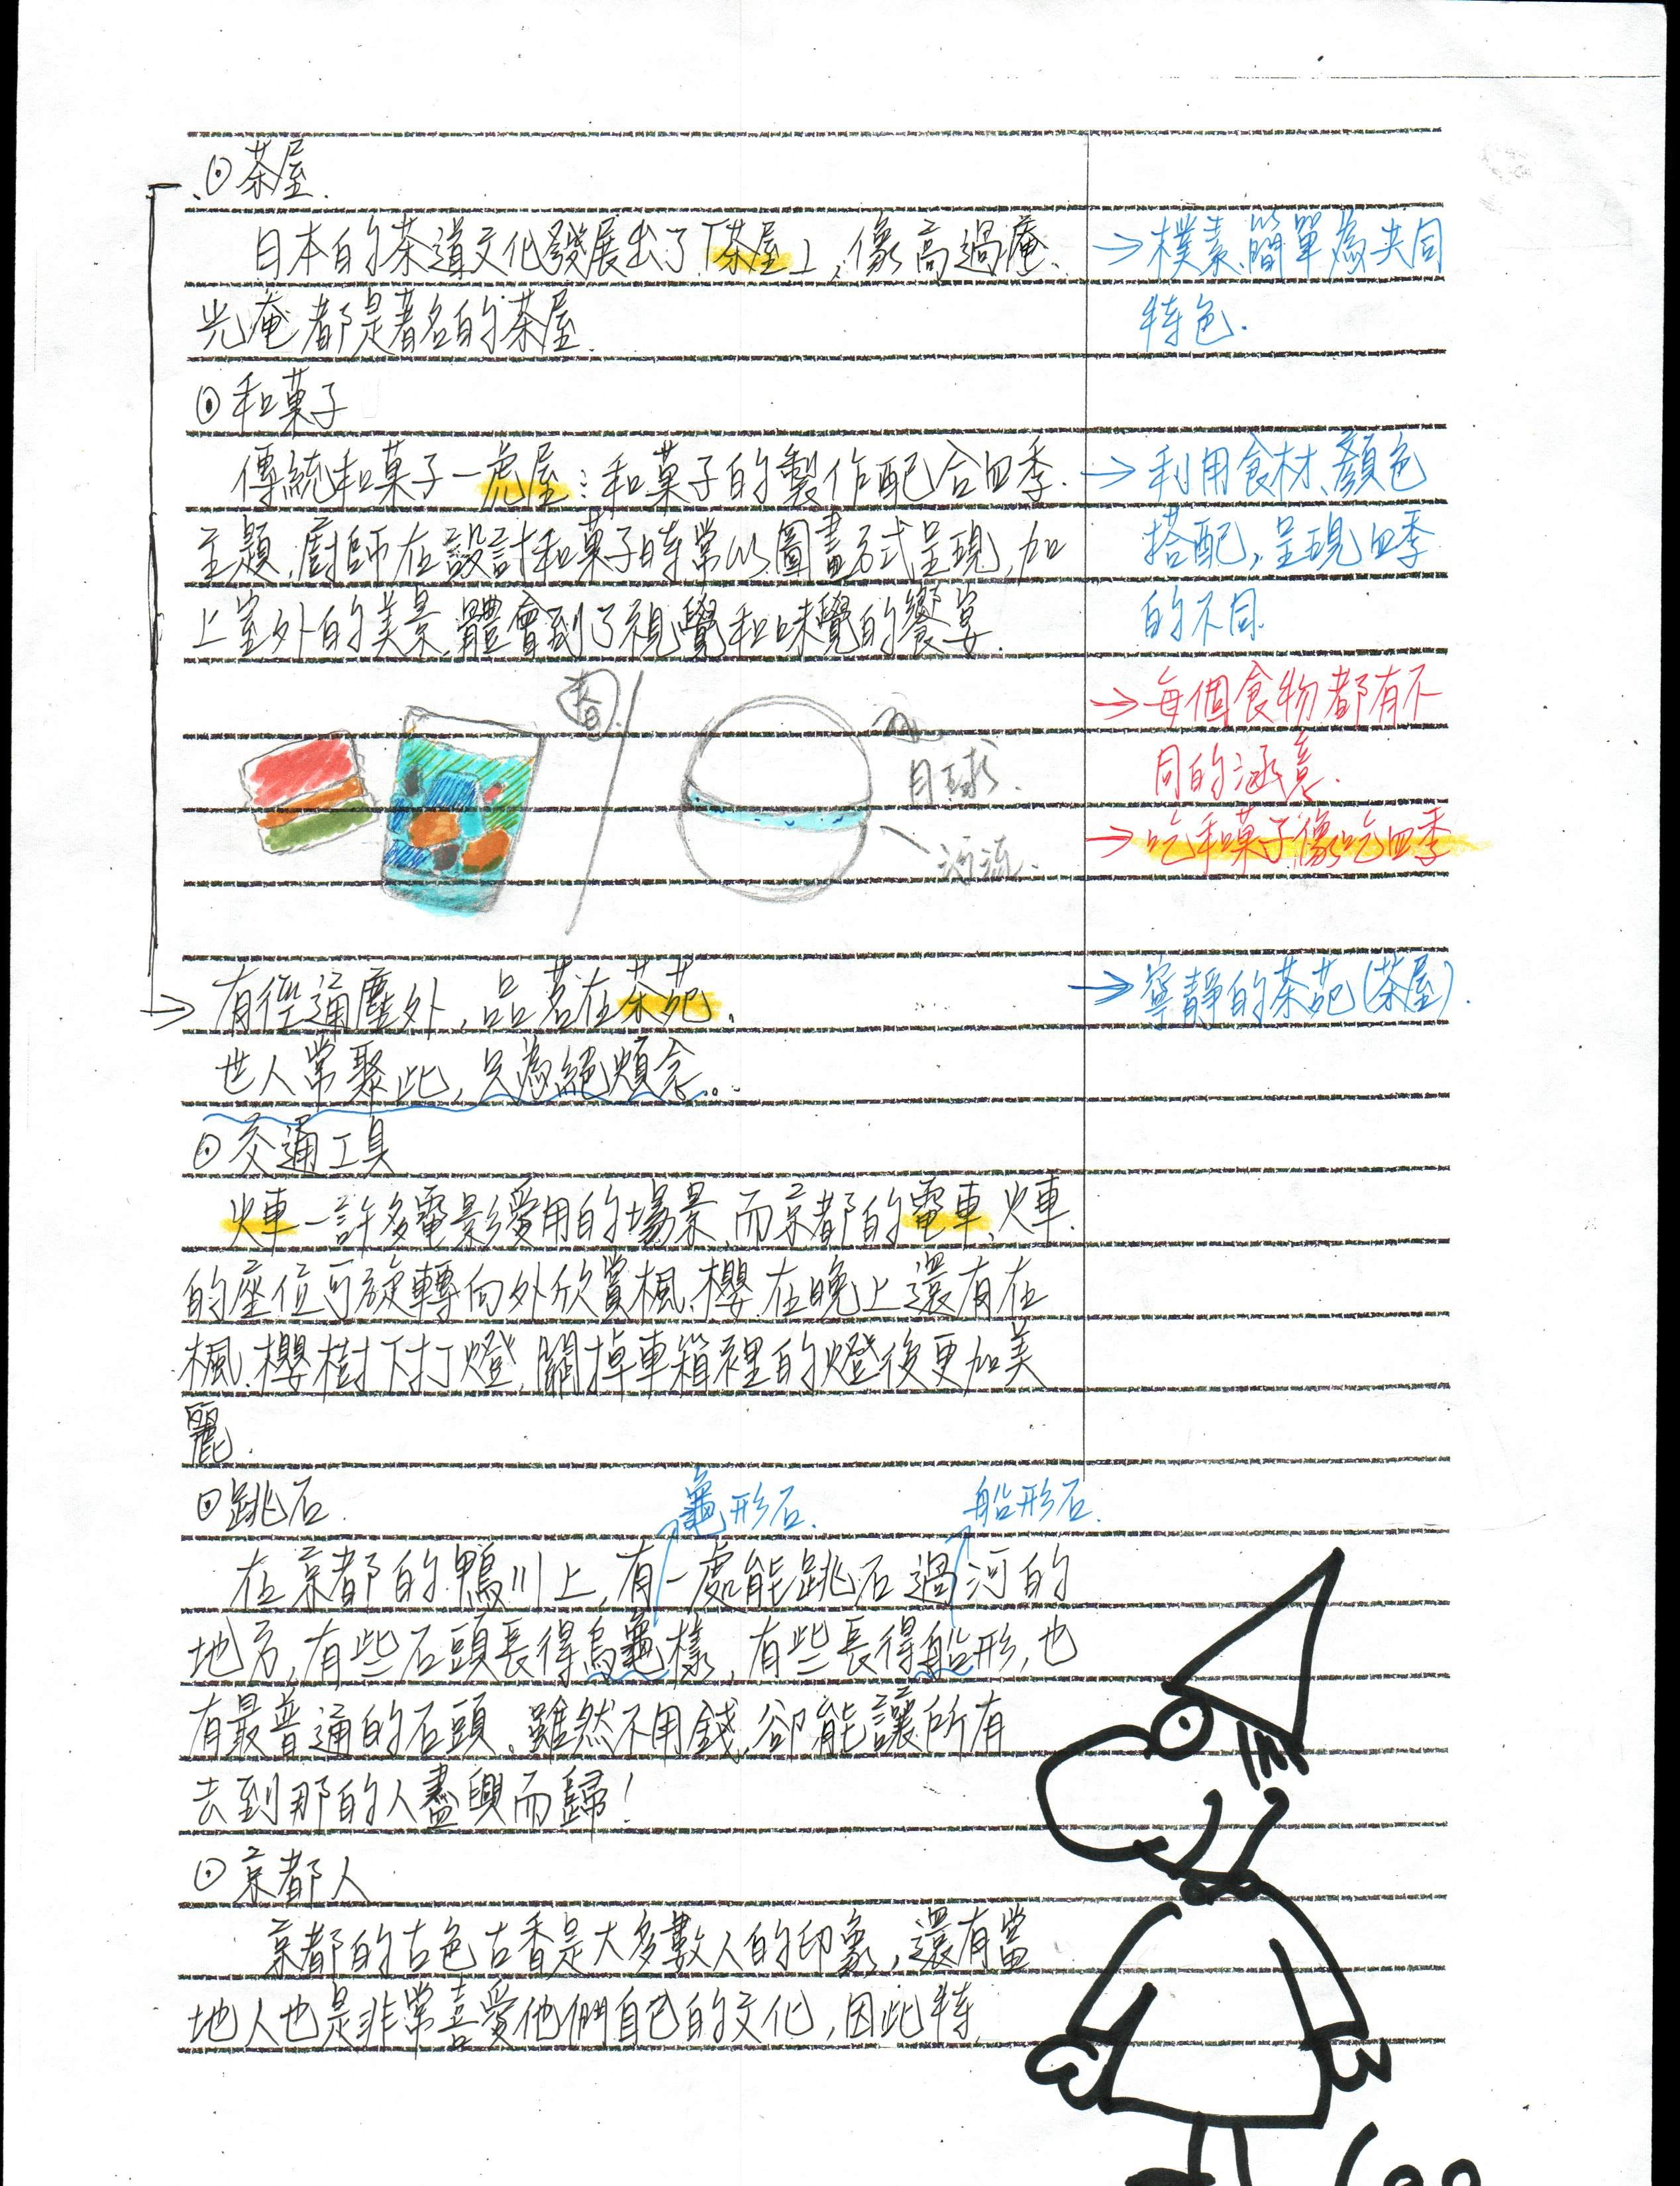 ⊙茶屋.
日本的茶道文化發展出了「茶屋」,像高過庵、
光庵都是著名的茶屋.
→樸素、簡單為共同
特色.
⊙和菓子
傳統和菓子—虎屋:和菓子的製作配合四季.
主題,廚師在設計和菓子時常以圖畫方式呈現,加
上室外的美景,體會到了視覺和味覺的饗宴.
→利用食材、顏色
搭配,呈現四季
的不同.
→每個食物都有不
同的涵意.
→吃和菓子像吃四季
春
月球.
河流.
→有徑通塵外,品茗在茶苑.
世人常聚此,只為絕煩念..
→寧靜的茶苑(茶屋).
⊙交通工具
火車—許多電影愛用的場景,而京都的電車、火車.
的座位可旋轉向外欣賞楓、櫻.在晚上還有在
楓、櫻樹下打燈,關掉車箱裡的燈後更加美
麗.
⊙跳石.
龜形石.
船形石.
在京都的鴨川上,有一處能跳石過河的
地方,有些石頭長得烏龜樣,有些長得船形,也
有最普通的石頭.雖然不用錢,卻能讓所有
去到那的人盡興而歸!
⊙京都人
京都的古色古香是大多數人的印象,還有當
地人也是非常喜愛他們自己的文化,因此特